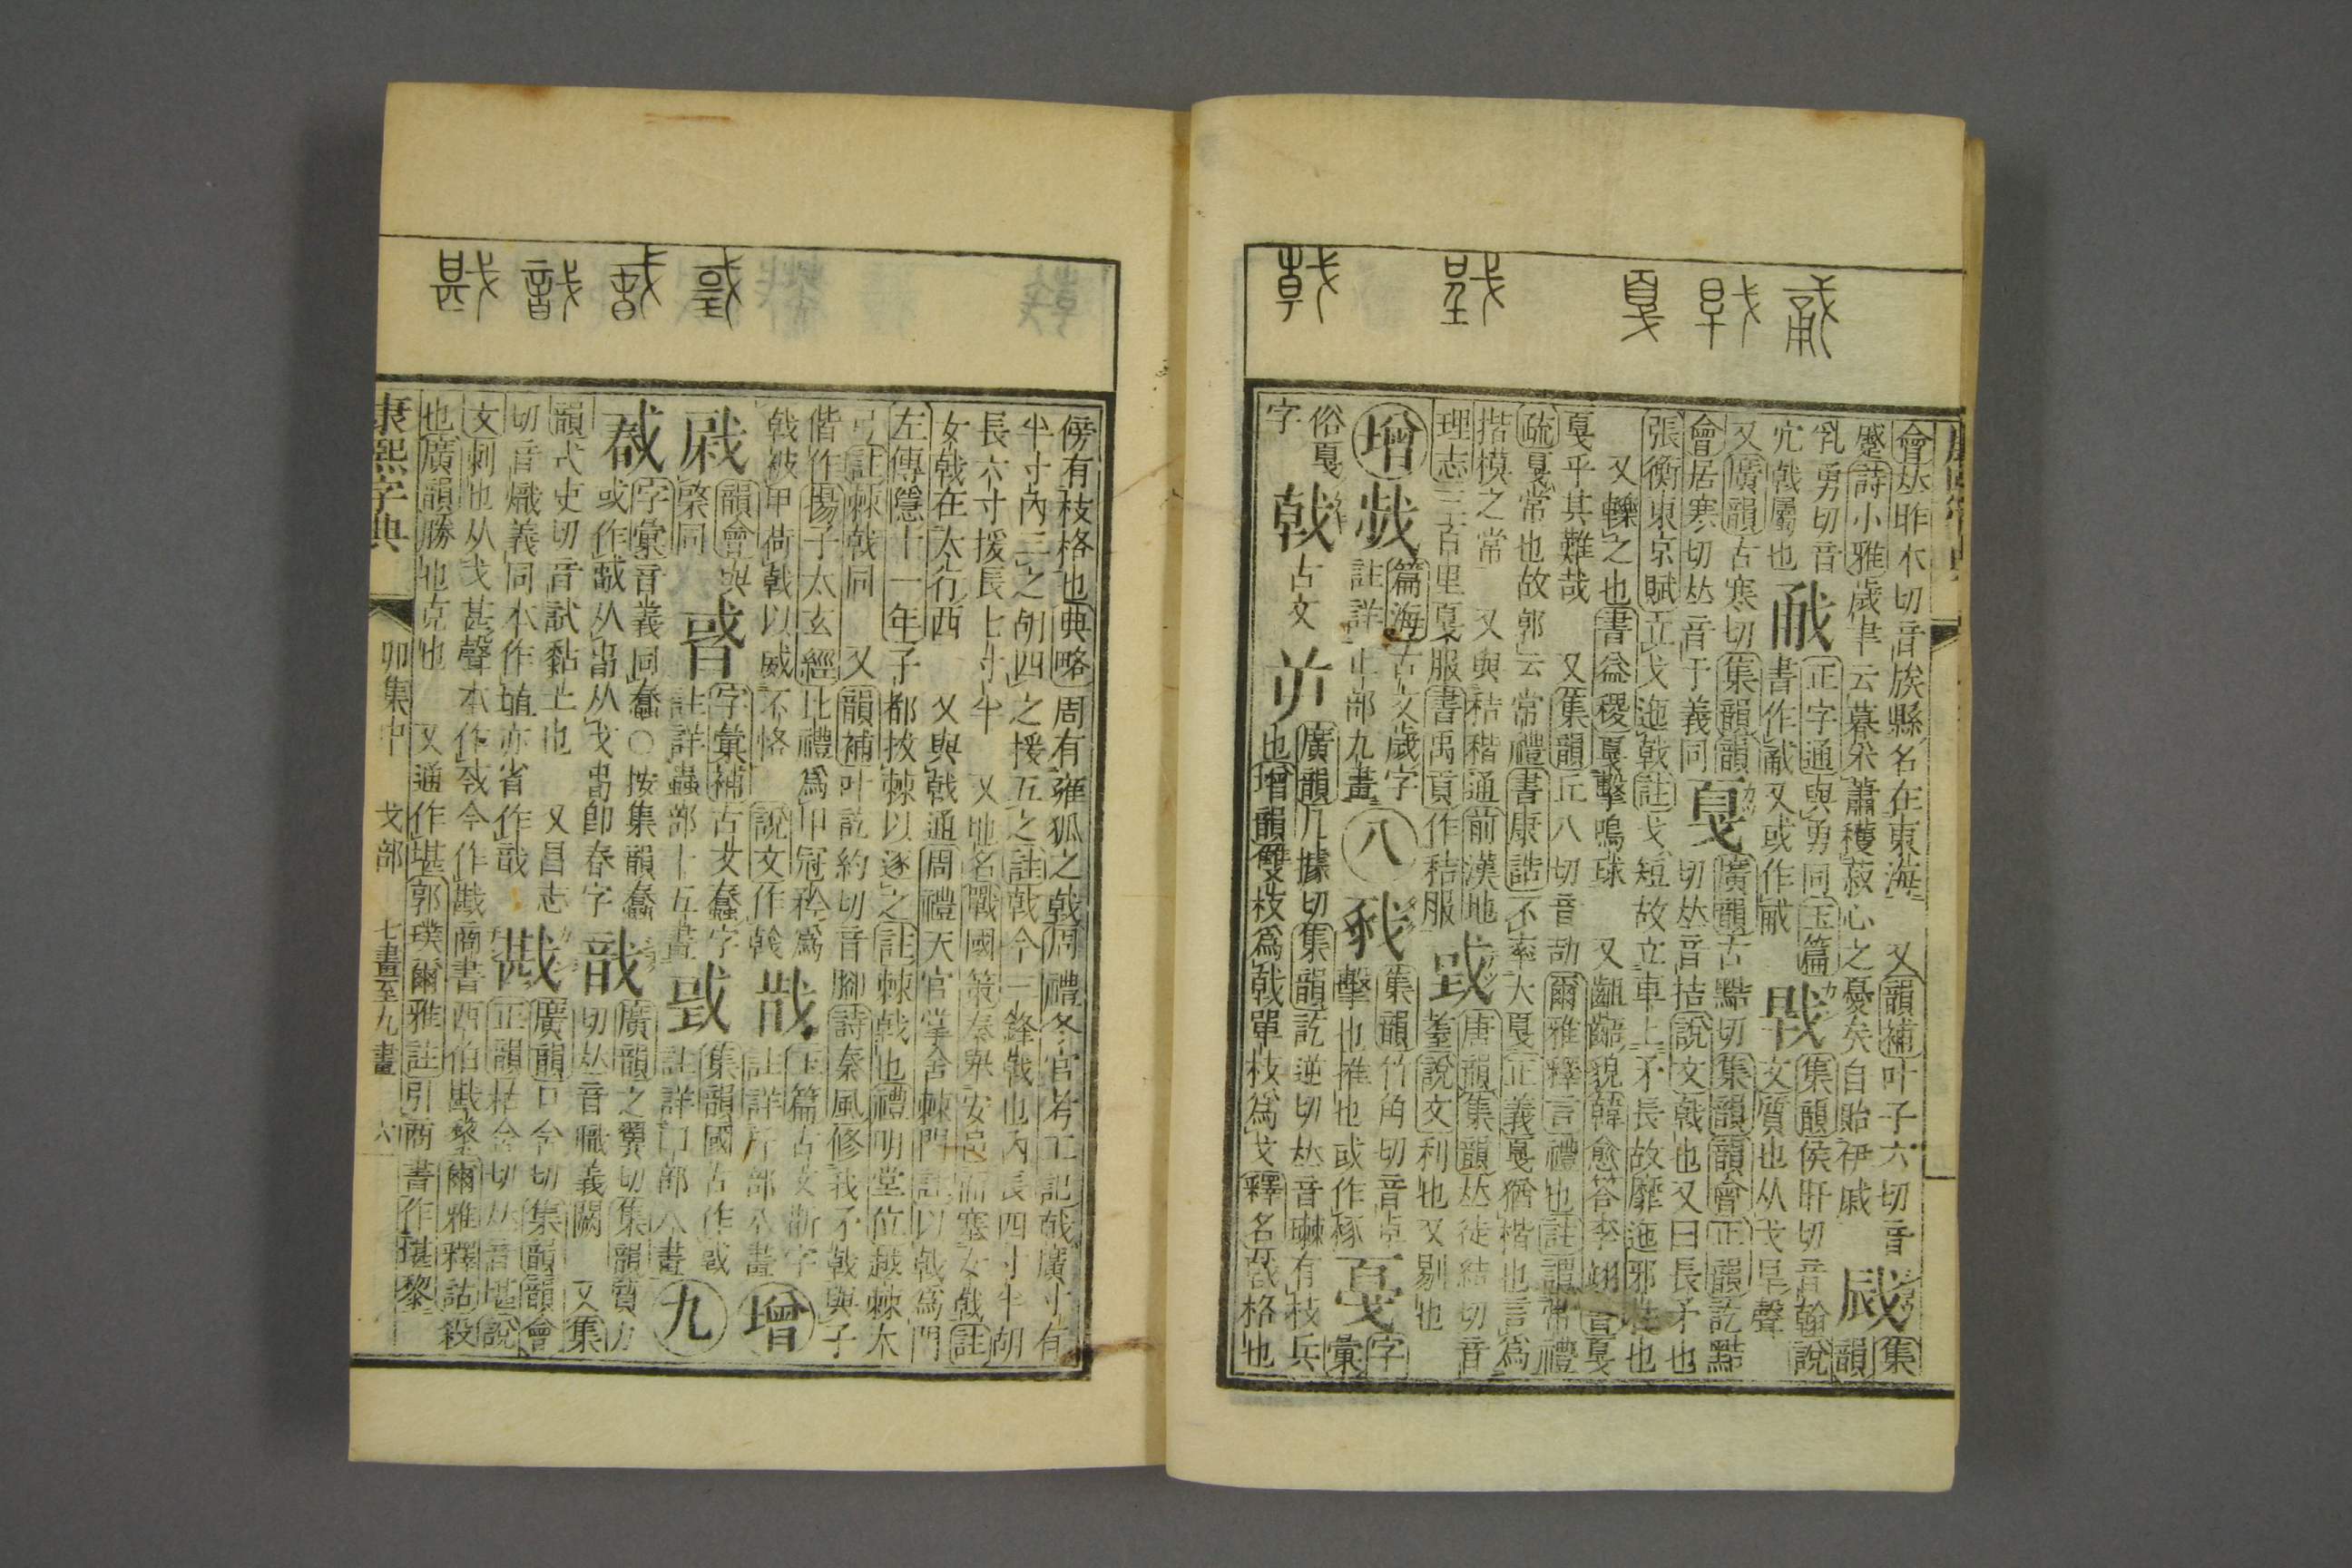 戟 戜 戛
會𠀤昨木切音族縣名在東海 又韻補叶子六切音 集
蹙詩小雅歲聿云暮采蕭穫菽心之憂矣自貽伊戚 韻
宂勇切音 正字通與勇同玉篇 集韻侯旰切音翰說
戟屬也 書作 又或作 文質也从戈旱聲
又廣韻古寒切集韻韻 戛 廣韻古黠切集韻韻會正韻訖黠
會居寒切𠀤音干義同 切𠀤音拮說文戟也又曰長矛也
張衡東京賦立戈迤戛註戈短故立車上矛長故靡迤邪柱也
又轢之也書益稷戛擊鳴球 又齟齬貌韓愈答李翊書戛
戛乎其難哉 又集韻丘八切音劼爾雅釋言禮也註謂常禮
疏戛常也故郭云常禮書康誥不率大戛正義戛猶楷也言爲
揩模之常 又與秸稭通前漢地 戜 唐韻集韻𠀤徒結切音
理志三百里戛服書禹貢作秸服 耋說文利也又剔也
增 篇海古文歲字 八 集韻竹角切音卓 戞 字
註詳止部九畫 擊也推也或作椓 彙
俗戛 戟 古文 廣韻几據切集韻訖逆切𠀤音 有枝兵
字 也增韻雙枝爲戟單枝爲戈釋名戟格也
戡 戠
傍有枝格也典略周有雍狐之戟周禮冬官考工記戟廣寸有
半寸內三之胡四之援五之註戟今三鋒戟也內長四寸半胡
長六寸援長七寸半 又地名戰國策秦舉安邑而塞女戟註
女戟在太行西 又與戟通周禮天官掌舍棘門註以戟爲門
左傳隱十一年子都拔棘以逐之註棘戟也禮明堂位越棘大
弓註棘戟同 又韻補叶訖約切音腳詩秦風修我矛戟與子
偕作揚子太玄經比禮爲甲冠矜爲 玉篇古文斷字 增
戟被甲荷戟以威不恪 說文作 註詳斤部 畫
韻會與 字彙補古文蠢字 集韻國古作
棨同 註詳蟲部十五畫 註詳囗部八畫 九
字彙音義同蠢○按集韻蠢 戠 廣韻之翼切集韻質力
或作 从 从戈 卽春字 切𠀤音職義闕 又集
韻式吏切音試黏土也 又昌志 戡 廣韻口含切集韻韻會
切音熾義同本作埴亦省作戠 正韻枯含切𠀤音堪說
文刺也从戈甚聲本作 今作戡商書西伯戡黎爾雅釋詁殺
也廣韻勝也克也 又通作堪郭璞爾雅註引商書作堪黎
康熙字典 卯集中 戈部 七畫至九畫 六